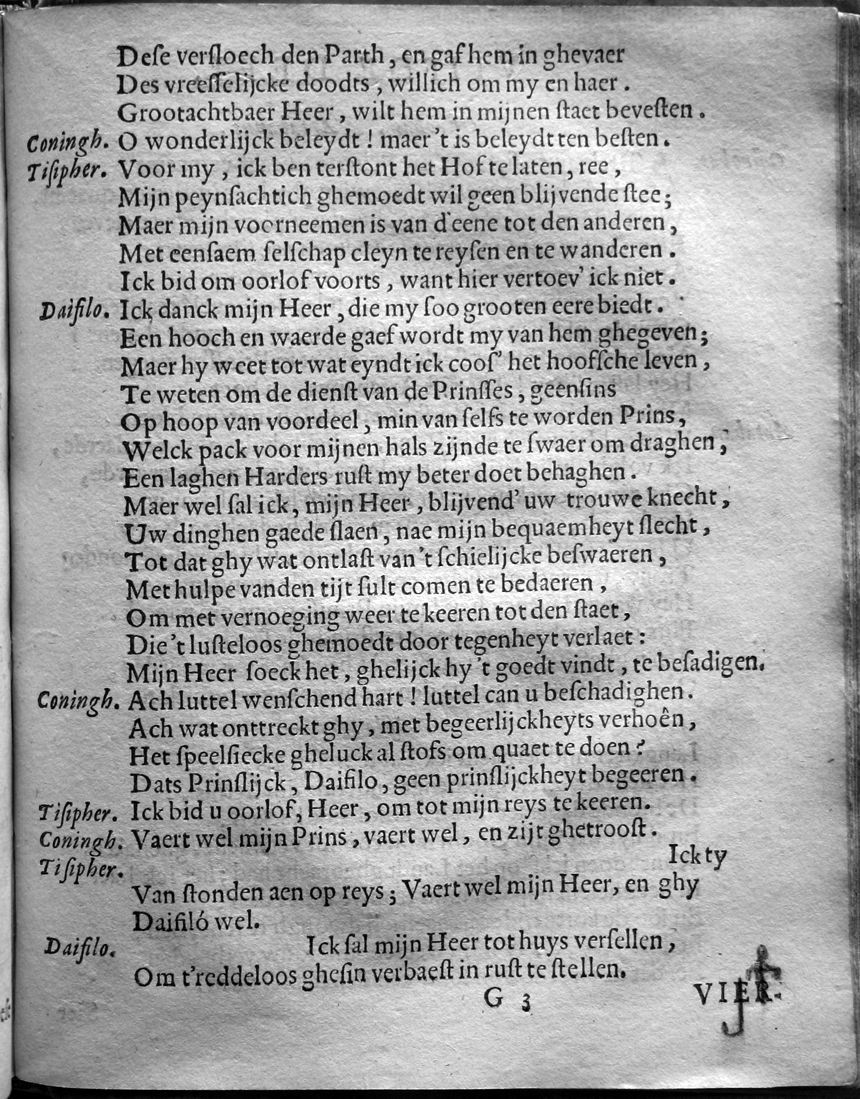 Deſe verſloech den Parth, en gaf hem in ghevaer
Des vreeſſelijcke doodts, willich om my en haer.
Grootachtbaer Heer, wilt hem in mijnen ſtaet beveſten.
Coningh. O wonderlijck beleydt! maer 't is beleydt ten beſten.
Tiſipher. Voor my, ick ben terſtont het Hof te laten, ree,
Mijn peynſachtich ghemoedt wil geen blijvende ſtee;
Maer mijn voorneemen is van d'eene tot den anderen,
Met eenſaem ſelſchap cleyn te reyſen en te wanderen.
Ick bid om oorlof voorts, want hier vertoev' ick niet.
Daifilo. Ick danck mijn Heer, die my ſoo grooten eere biedt.
Een hooch en waerde gaef wordt my van hem ghegeven;
Maer hy weet tot wat eyndt ick coos' het hoofſche leven,
Te weten om de dienſt van de Prinſſes, geenſins
Op hoop van voordeel, min van ſelfs te worden Prins,
Welck pack voor mijnen hals zijnde te ſwaer om draghen,
Een laghen Harders ruſt my beter doet behaghen.
Maer wel ſal ick, mijn Heer, blijvend' uw trouwe knecht,
Uw dinghen gaede ſlaen, nae mijn bequaemheyt ſlecht,
Tot dat ghy wat ontlaſt van 't ſchielijcke beſwaeren,
Met hulpe vanden tijt ſult comen te bedaeren,
Om met vernoeging weer te keeren tot den ſtaet,
Die 't luſteloos ghemoedt door tegenheyt verlaet:
Mijn Heer ſoeck het, ghelijck hy 't goedt vindt, te beſadigen.
Coningh. Ach luttel wenſchend hart! luttel can u beſchadighen.
Ach wat onttreckt ghy, met begeerlijckheyts verhoên,
Het ſpeelſiecke gheluck al ſtofs om quaet te doen?
Dats Prinſlijck, Daifilo, geen prinſlijckheyt begeeren.
Tiſipher. Ick bid u oorlof, Heer, om tot mijn reys te keeren.
Coningh. Vaert wel mijn Prins, vaert wel, en zijt ghetrooſt.
Tiſipher. Ick ty
Van ſtonden aen op reys; Vaert wel mijn Heer, en ghy
Daifiló wel.
Daifilo. Ick ſal mijn Heer tot huys verſellen,
Om t'reddeloos gheſin verbaeſt in ruſt te ſtellen.
G 3 VIER.